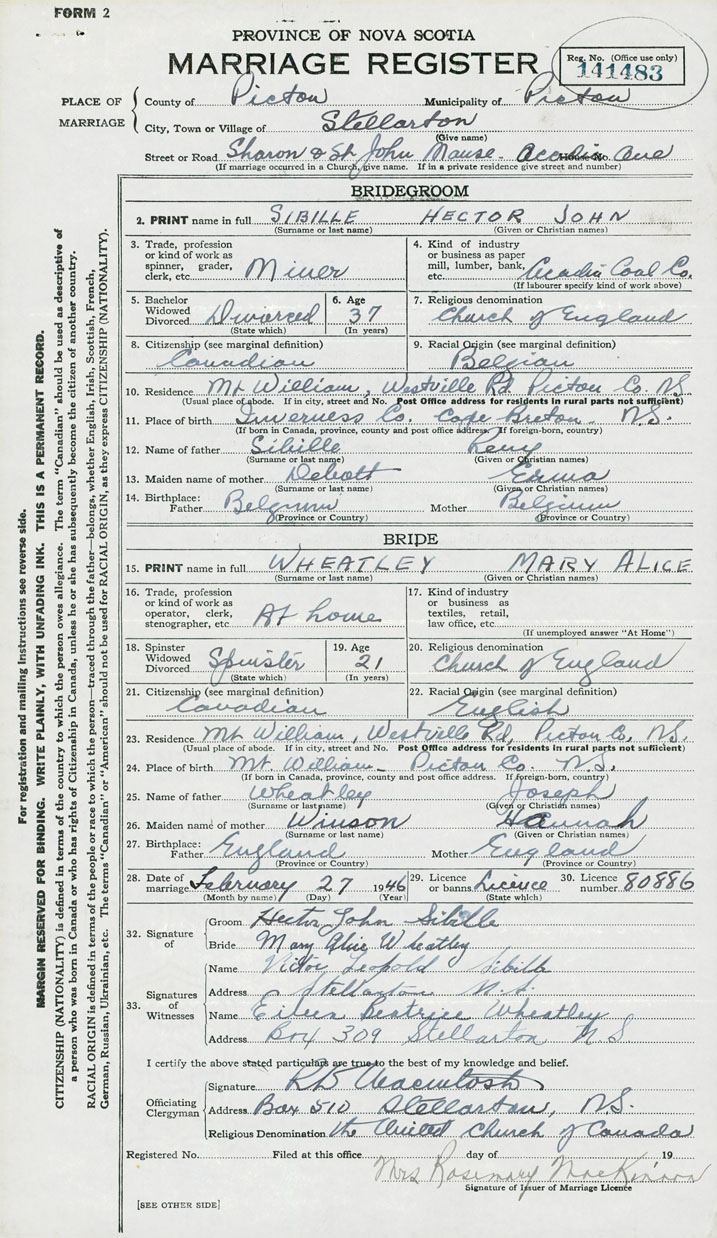 FORM 2
PROVINCE OF NOVA SCOTIA
MARRIAGE REGISTER
Reg. No. (Office use only)
141483
PLACE OF MARRIAGE
County of Picton Municipality of Picton
City, Town or Village of Stellarton
(Give name)
Street or Road Sharon & St John Manse. Acadia Ave
(If marriage occurred in a Church, give name. If in a private residence give street and number)
BRIDEGROOM
2. PRINT name in full SIBILLE HECTOR JOHN
(Surname or last name) (Given or Christian names)
3. Trade, profession or kind of work as spinner, grader, clerk, etc. Miner
4. Kind of industry or business as paper mill, lumber, bank, etc. Acadia Coal Co.
(If labourer specify kind of work above)
5. Bachelor Widowed Divorced Divorced
(State which)
6. Age 37
(In years)
7. Religious denomination
Church of England
8. Citizenship (see marginal definition)
Canadian
9. Racial Origin (see marginal definition)
Belgian
10. Residence Mt William, Westville Rd Picton Co. N.S.
(Usual place of abode. If in city, street and No. Post Office address for residents in rural parts not sufficient)
11. Place of birth Inverness Co. Cape Breton. N.S.
(If born in Canada, province, county and post office address. If foreign-born, country)
12. Name of father Sibille Remy
(Surname or last name) (Given or Christian names)
13. Maiden name of mother Emma
(Surname or last name) (Given or Christian names)
14. Birthplace: Father Belgium Mother Belgium
(Province or Country) (Province or Country)
BRIDE
15. PRINT name in full WHEATLEY MARY ALICE
(Surname or last name) (Given or Christian names)
16. Trade, profession or kind of work as operator, clerk, stenographer, etc. At home
17. Kind of industry or business as textiles, retail, law office, etc.
(If unemployed answer "At Home")
18. Spinster Widowed Divorced Spinster
(State which)
19. Age 21
(In years)
20. Religious denomination
Church of England
21. Citizenship (see marginal definition)
Canadian
22. Racial Origin (see marginal definition)
English
23. Residence Mt William, Westville Rd, Picton Co, N.S.
(Usual place of abode. If in city, street and No. Post Office address for residents in rural parts not sufficient)
24. Place of birth Mt. William- Picton Co. N.S.
(If born in Canada, province, county and post office address. If foreign-born, country)
25. Name of father Wheatley Joseph
(Surname or last name) (Given or Christian names)
26. Maiden name of mother Winson Hannah
(Surname or last name) (Given or Christian names)
27. Birthplace: Father England Mother England
(Province or Country) (Province or Country)
28. Date of marriage February 27 1946
(Month by name) (Day) (Year)
29. Licence or banns Licence
(State which)
30. Licence number 80886
32. Signature of
Groom Hector John Sibille
Bride Mary Alice Wheatley
33. Signatures of Witnesses
Name Victor Leopold Sibille
Address Stellarton N.S.
Name Eileen Beatrice Wheatley
Address Box 309 Stellarton N S
I certify the above stated particulars are true to the best of my knowledge and belief.
Officiating Clergyman
Signature Macintosh
Address Box 510 Stellarton, N.S.
Religious Denomination the United Church of Canada
Registered No. Filed at this office day of 19
Mrs Rosemary MacKinnon
Signature of Issuer of Marriage Licence
[SEE OTHER SIDE]
For registration and mailing instructions see reverse side.
MARGIN RESERVED FOR BINDING. WRITE PLAINLY, WITH UNFADING INK. THIS IS A PERMANENT RECORD.
CITIZENSHIP (NATIONALITY) is defined in terms of the country to which the person owes allegiance. The term "Canadian" should be used as descriptive of
a person who was born in Canada or who has rights of Citizenship in Canada, unless he or she has subsequently become the citizen of another country.
RACIAL ORIGIN is defined in terms of the people or race to which the person—traced through the father—belongs, whether English, Irish, Scottish, French,
German, Russian, Ukrainian, etc. The terms "Canadian" or "American" should not be used for RACIAL ORIGIN, as they express CITIZENSHIP (NATIONALITY).